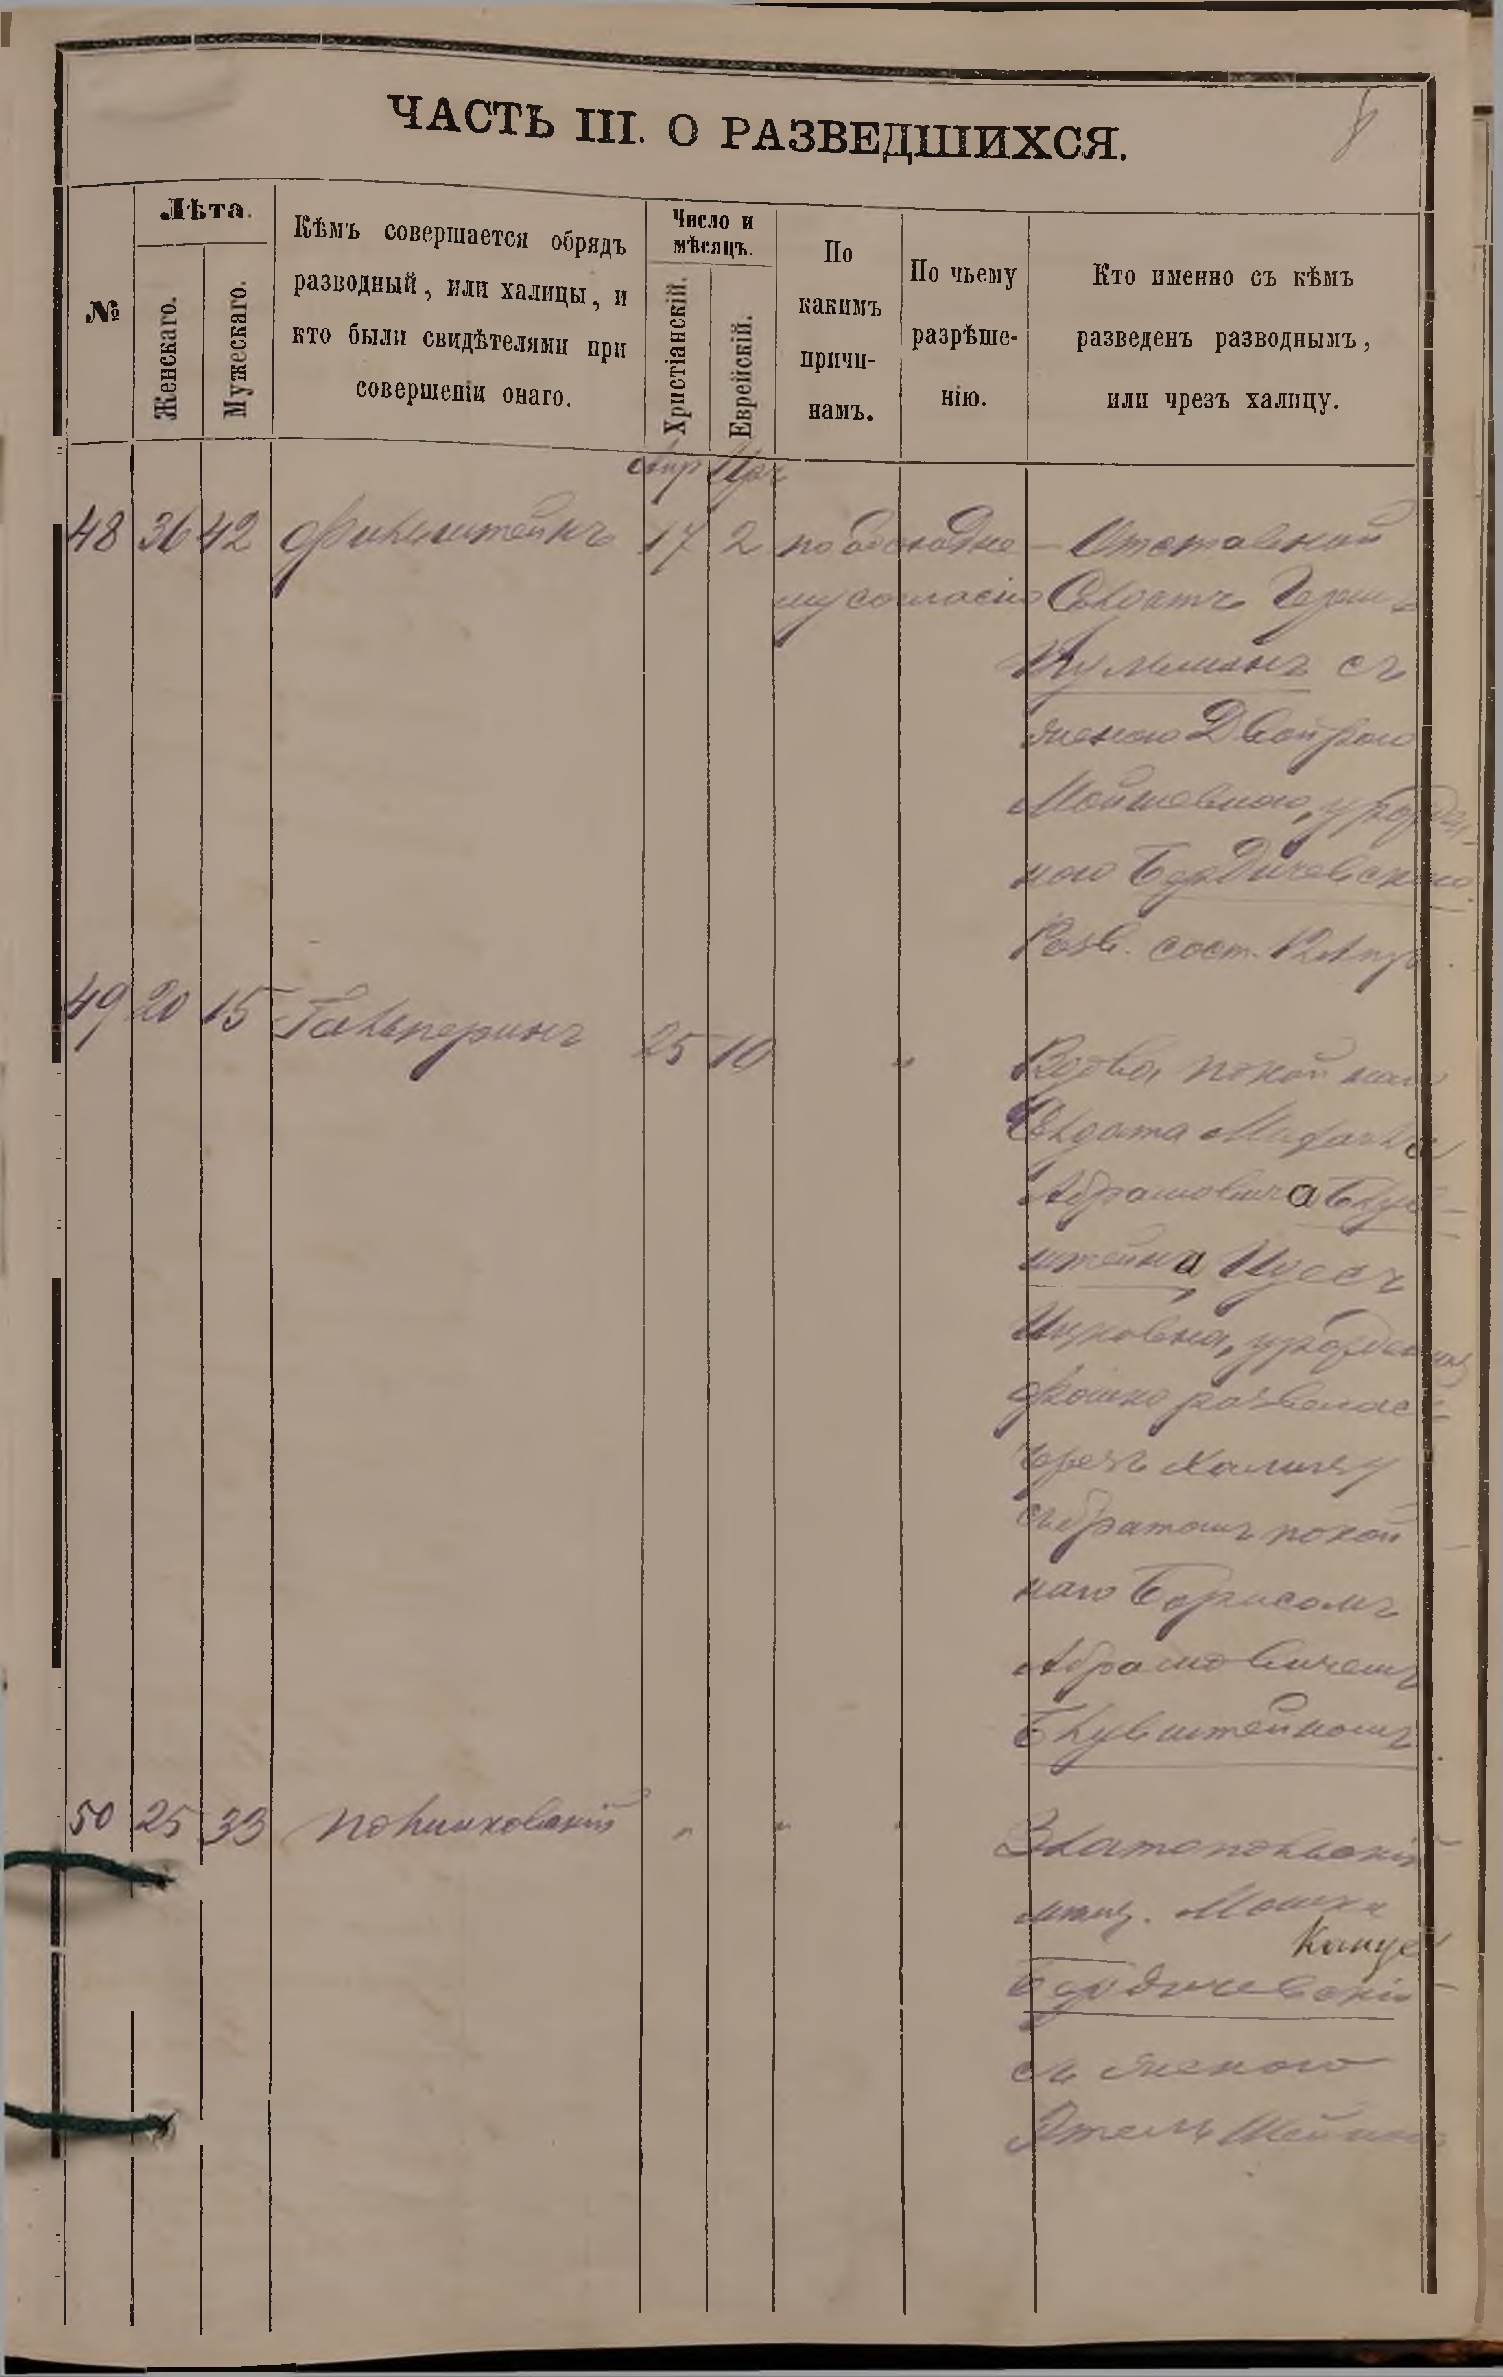 ЧАСТЬ III. О РАЗВЕДШИХСЯ.
№
Лѣта.
Женскаго.
Мужескаго.
Кѣмъ совершается обрядъ
разводный, или халицы, и
кто были свидѣтелями при
совершеніи онаго.
Число и
мѣсяцъ.
Христіанскій.
Еврейскій.
По
какимъ
причи-
намъ.
По чьему
разрѣше-
нію.
Кто именно съ кѣмъ
разведенъ разводнымъ,
или чрезъ халицу.
Апр
48 36 42 Финкельштейнъ 17 2 по обоюдно- Отставной
му согласію Солдатъ Герш
съ
женою Двойрою
Мойшевною, урожден-
ною Бердичевскою
Разв. сост. 12 Апр.
49 20 15 Гальперинъ 25 10 " Вдова покойнаго
Солдата Михаила
Абрамовича Блув-
штейна
Ицковна, урожденная
развелась
чрезъ Халицу
съ братомъ покой
наго Борисомъ
Абрамовичемъ
Блувштейномъ
50 25 33 " " " Златопольскій
мѣщ. Мошка
Бердичевскій
съ женою